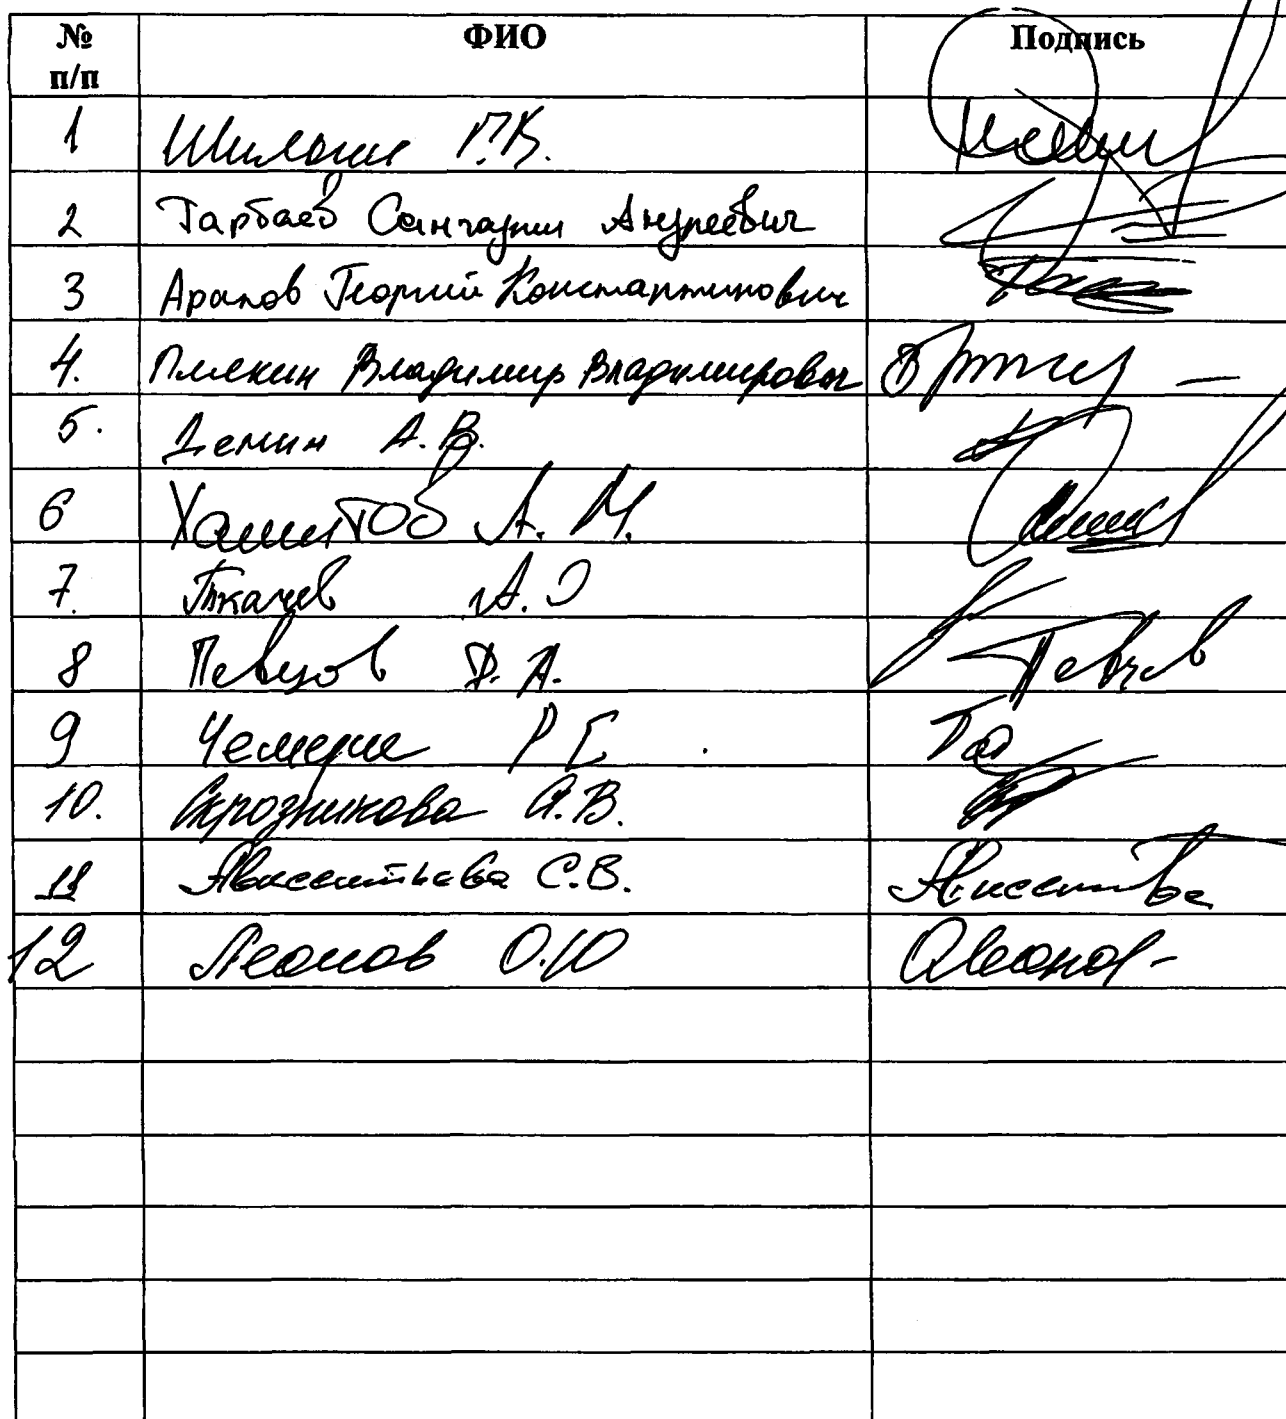 № п/п ФИО Подпись
1 Шилкин Г.В.
2 Тарбаев Сангаджи Андреевич
3 Арапов Георгий Константинович
4. Плякин Владимир Владимирович
5. Демин А.В.
6 Хамитов А.М.
7. Ткачев А.О
8 Певцов Д.А. Певцов
9 Чемерис Р.
10. Скрозникова А.В.
11 Авксентьева С.В.
12 Леонов О.Ю ОЛеонов-